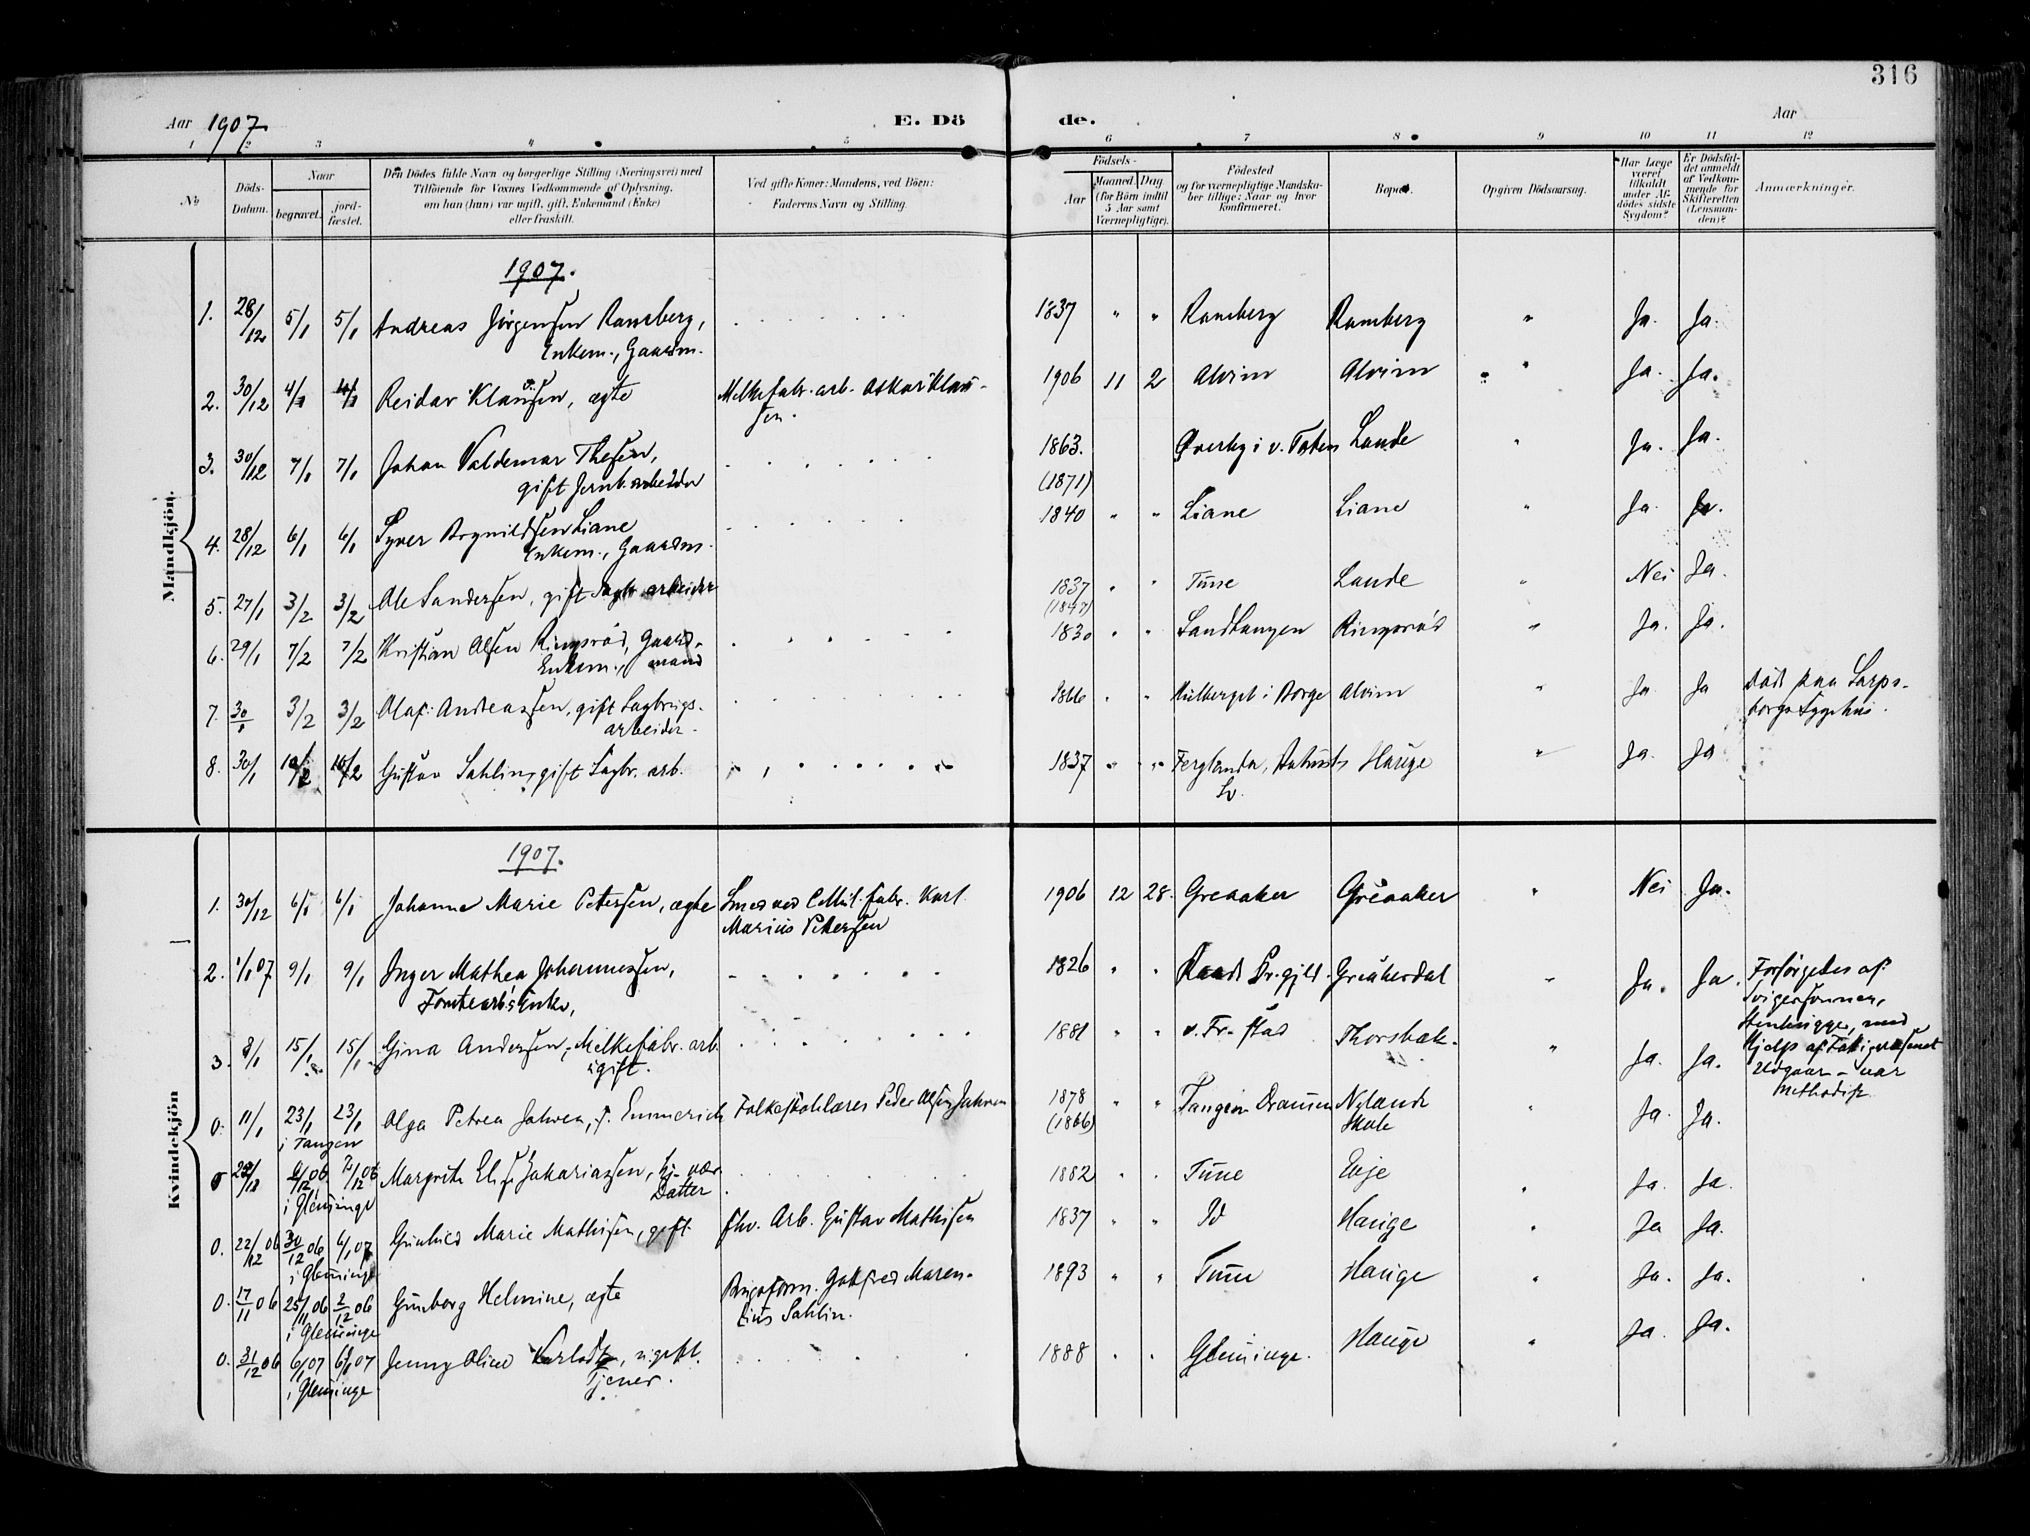 316
Aar 1907
E. Dö
de.
Aar
1 2 3 4 5 6 7 8 9 10 11 12
No
Döds-
Datum.
Naar
begravet.
jord-
fæstet.
Den Dödes fulde Navn og borgerlige Stilling (Næringsvei) med
Tilföiende for Voxnes Vedkommende af Oplysning,
om han (hun) var ugift, gift, Enkemand (Enke)
eller fraskilt.
Ved gifte Koner: Mandens, ved Börn:
Faderens Navn og Stilling.
Födsels-
Aar
Maaned. Dag
(for Börn indtil
5 Aar samt
Værnepligtige).
Födested
og for værnepligtige Mandska-
ber tillige: Naar og hvor
konfirmeret.
Bopæl.
Opgiven Dödsaarsag.
Har Læge
været
tilkaldt
under Af-
dödes sidste
Sygdom?
Er Dödsfal-
det anmeldt
af Vedkom-
mende for
Skifteretten
(Lensman-
den)?
Anmærkninger.
Mandkjön.
1907.
1. 28/12 5/1 5/1 Andreas Jørgensen Ramberg, 1837 " " Ramberg Ramberg " Ja. Ja.
Enkem., Gaardm.
2. 30/12 Reidar Klausen, ægte Melkefabr. arb. Oskar Klau-
sen.
1906 11 2 Alvim Alvim " Ja. Ja.
3. 30/12 7/1 7/1 Johan Valdemar Thesen, 1863. Øverby i v. Toten Lande " Ja. Ja.
gift Jernb. arbeider
(1871)
4. 28/12 6/1 6/1 Syver Brynildsen Liane 1840 " " Liane Liane " Ja. Ja.
Enkem., Gaardm.
5. 27/1 3/2 3/2 Ole Sandersen, gift Sagb. arbeider 1837 " " Tune Lande " Nei Ja.
(1847)
6. 29/1 7/2 7/2 Kristian Olsen Ringsrød, Gaard- 1830 " " Sandtangen Ringsrød " Ja. Ja.
Enkem., mand
7. 30/1 3/2 3/2 Olaf Andreassen, gift Sagbrugs- 1866 " " i Borge Alvim " Ja Ja Død paa Sarps-
arbeider. borgs Sygehus.
8. 30/1 10/2 10/2 Gustav Sahlin, gift Sagbr. arb. 1837 " " Ferglanda, Hauge " Ja. Ja
Sv.
Kvindekjön
1907.
1. 30/12 6/1 6/1 Johanne Marie Petersen, ægte Smed ved Cellul. fabr. Karl 1906 12 28. Greaaker Greaaker " Nei Ja.
Marius Petersen
2. 1/1 07 9/1 9/1 Inger Mathea Johannessen, 1826 " " Raade Pr.gjld. Greåkerdal " Ja. Ja. Forsørgedes af
Tomtearb's Enke, Svigersønnen,
Stenhugger, med
Hjelp af Fattigvæsenet
Udgaar - var
Methodist
3. 8/1 15/1 15/1 Gina Andersen, Melkefabr. arb. 1881 " " v. Fr-stad Thorsbak. " Ja. Ja.
ugift.
0. 11/1 23/1 23/1 Olga Petrea Jahren, f. Emmerich Folkeskolelærer Peder Olsen Jahren 1878 " " Tangen Drammen Nylande " Ja. Ja.
i Tangen (1866) Skole
0 6/12 06 7/12 06 Margrete Elise Zakariassen, 1882 " " Tune Evje " Ja. Ja.
i Glemminge Datter
0. 22/12 06 30/12 06 6/1 07 Gunhild Marie Mathisen, gift fhv. Arb. Gustav Mathisen 1837 " " Id Hauge " Ja Ja.
i Glemminge
0. 17/11 06 25/11 06 2/12 06 Gunborg Helmine, ægte Brugsform. Gotfred Maren- 1893 " " Tune Hauge " Ja. Ja.
i Glemminge tius Sahlin.
0. 31/12 06 6/1 07 6/1 07 Jenny Oline Karlsdt, ugift. 1888 " " Glemminge. Hauge " Ja. Ja.
i Glemminge Tjener.